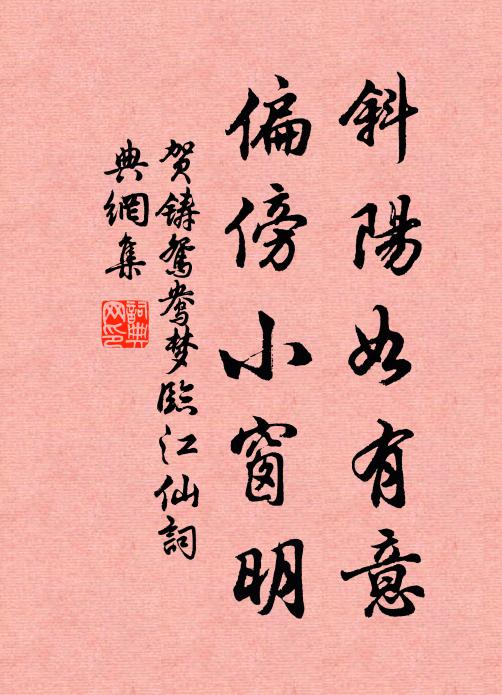 斜陽如有意
偏傍小窗明
賀鑄鴛鴦梦臨江仙詞
典網集
詞典网印